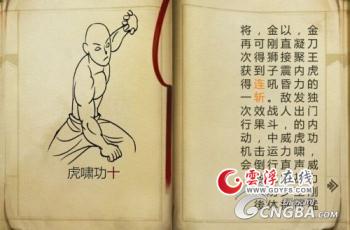 虎啸功十
金刀王虎的独门内功，威
，凝聚内力发出的虎啸声
以直接震昏敌人，威力直
金刚狮子吼。战斗中运行
，可得到连斩效果，击倒
将再次获得一次行动机会
雲浮在线
WWW.GDYFS.COM
CNGBA.COM